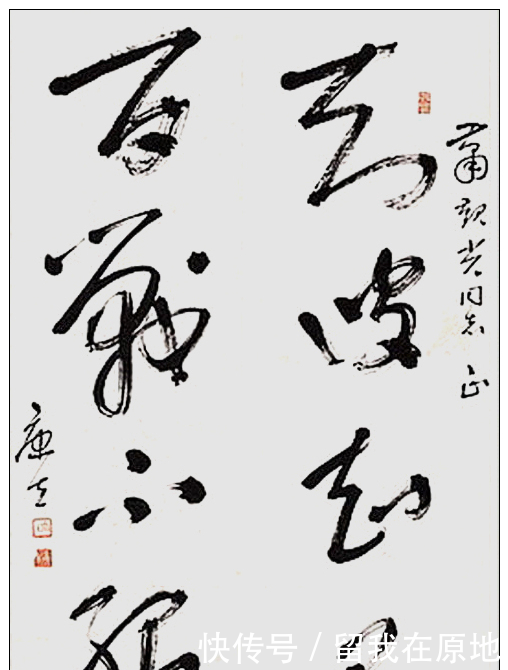 蕭觀光同志 正
知彼知
百戰不
快传号 / 留我在原地